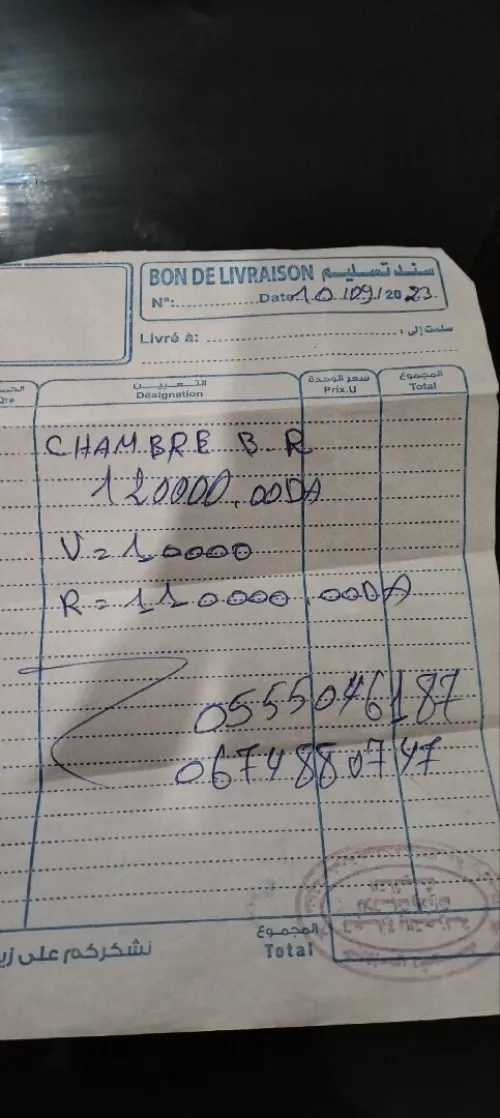 BON DE LIVRAISON سند تسليم
N°:.................Date 10/09/2023.
Livré à: سلمت إلى :
Qté التعييـن سعر الوحدة المجموع
Désignation Prix.U Total
CHAMBRE B R
120000,00DA
V = 10000
R = 110000,00DA
0555046187
0674880747
المجموع
نشكركم على Total